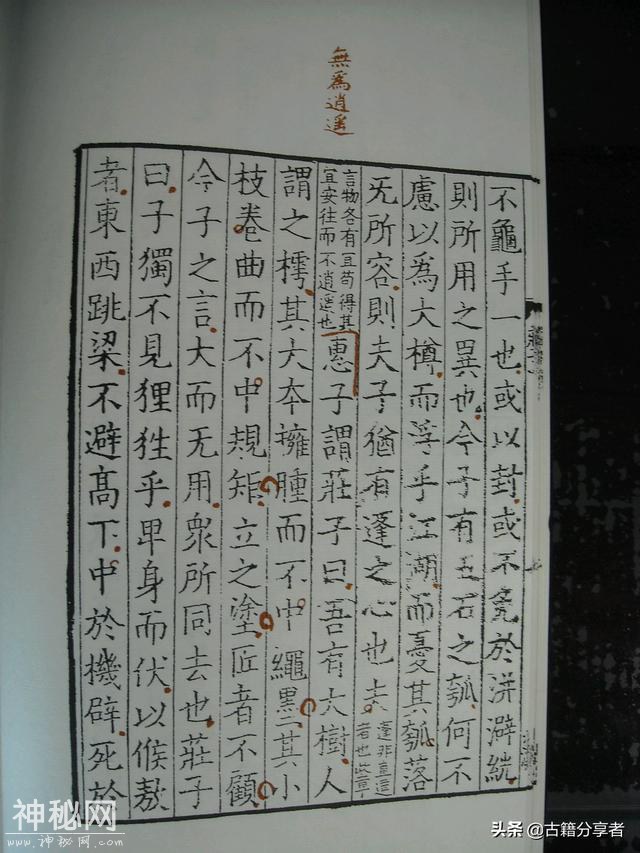 無爲逍遥
不龜手一也或以封或不免於洴澼絖
則所用之異也今子有五石之瓠何不
慮以爲大樽而浮乎江湖而憂其瓠落
无所容則夫子猶有蓬之心也夫蓬非直達者也此章
言物各有宜苟得其宜安往而不逍遥也惠子謂莊子曰吾有大樹人
謂之樗其大本擁腫而不中繩墨其小
枝卷曲而不中規矩立之塗匠者不顧
今子之言大而无用衆所同去也莊子
曰子獨不見狸狌乎卑身而伏以候敖
者東西跳梁不避髙下中於機辟死於
神秘网
www.神秘网.com
头条 @古籍分享者